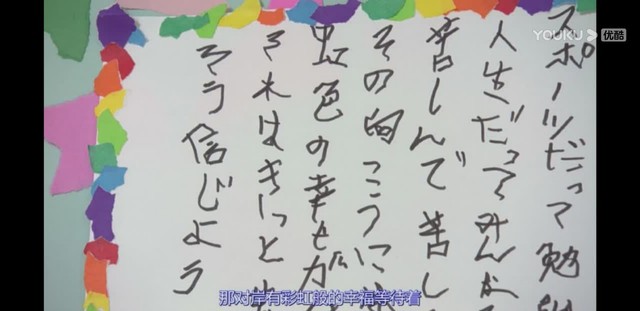 スポーツだって勉
人生だってみんな
苦しんで苦し
その向こうに
虹色の幸せが
それはきっと
そう信じよう
YOUKU 优酷
那对岸有彩虹般的幸福等待着